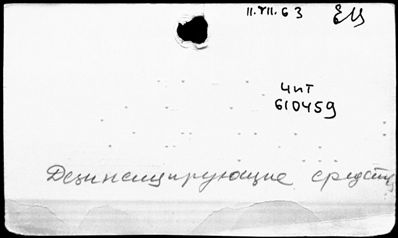 11.VII.63 ЕЦ
Чит
610459
Дезинсицирующие средства